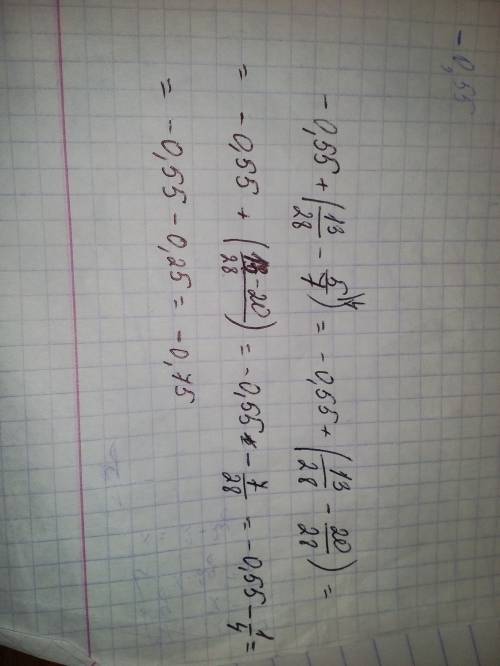 - 0,55
- 0,55 + (13/28 - 5/7\4) = - 0,55 + (13/28 - 20/28) =
= - 0,55 + (13-20/28) = - 0,55 - 7/28 = - 0,55 - 1/4 =
= - 0,55 - 0,25 = - 0,75